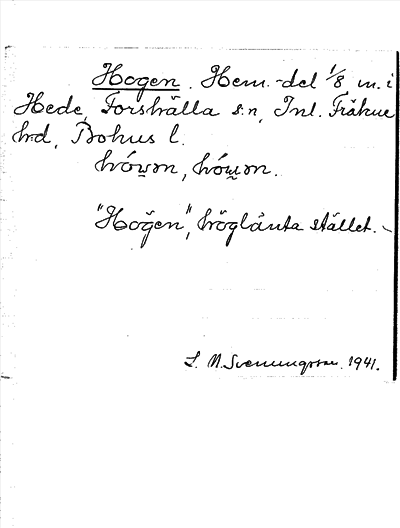 Hogen. Hem.-del 1/8 m. i
Hede, Forshälla s:n, Inl. Fräkne
hrd, Bohus l.
"Hogen", höglänta stället.
S. M. Svenungsson. 1941.